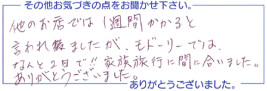 その他お気づきの点をお聞かせ下さい。
他のお店では1週間かかると
言われましたが、モドーリーでは、
なんと2日で!!家族旅行に間に合いました。
ありがとうございました。
ありがとうございました。